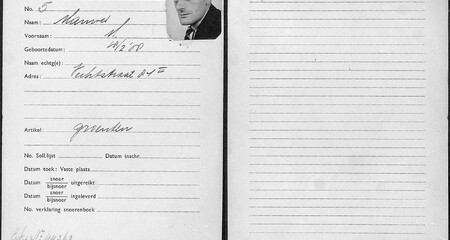 No. 5
Naam:
Voornaam:
Geboortedatum:
Naam echtg(e):
Adres: Vechtstraat 84 II
Artikel: groenten
No. Soll.lijst Datum inschr.
Datum toek: Vaste plaats
Datum snoer bijsnoer uitgereikt
Datum snoer bijsnoer ingeleverd
No. verklaring snoerenboek: